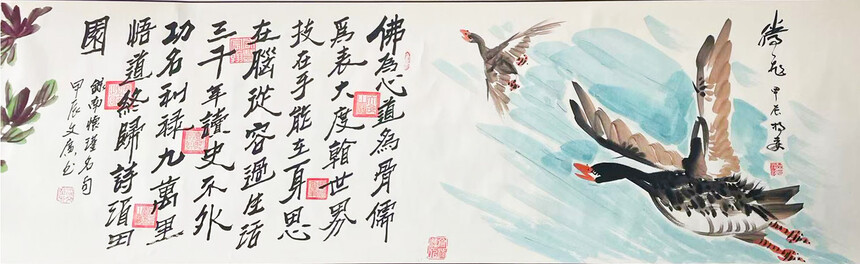 騰飛
甲辰
佛為心道為骨儒
為表大度翰世界
技在手能在身思
在腦從容過生活
三千年讀史不外
功名利祿九萬里
悟道終歸詩酒田
園
錄南懷瑾名句
甲辰文廣书